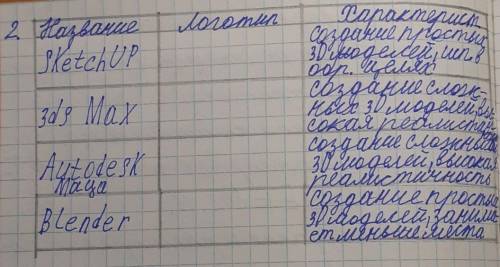 2. Название логотип Характерист
SketchUP
создание простых
3D моделей, исп. в
обр. целях
3ds Max
создание слож-
ных 3D моделей, вы
сокая реалистично
Autodesk
Маya
создание сложных
3D моделей, высокая
реалистичность
Blender
создание простых
3D моделей, занима
ет меньше места